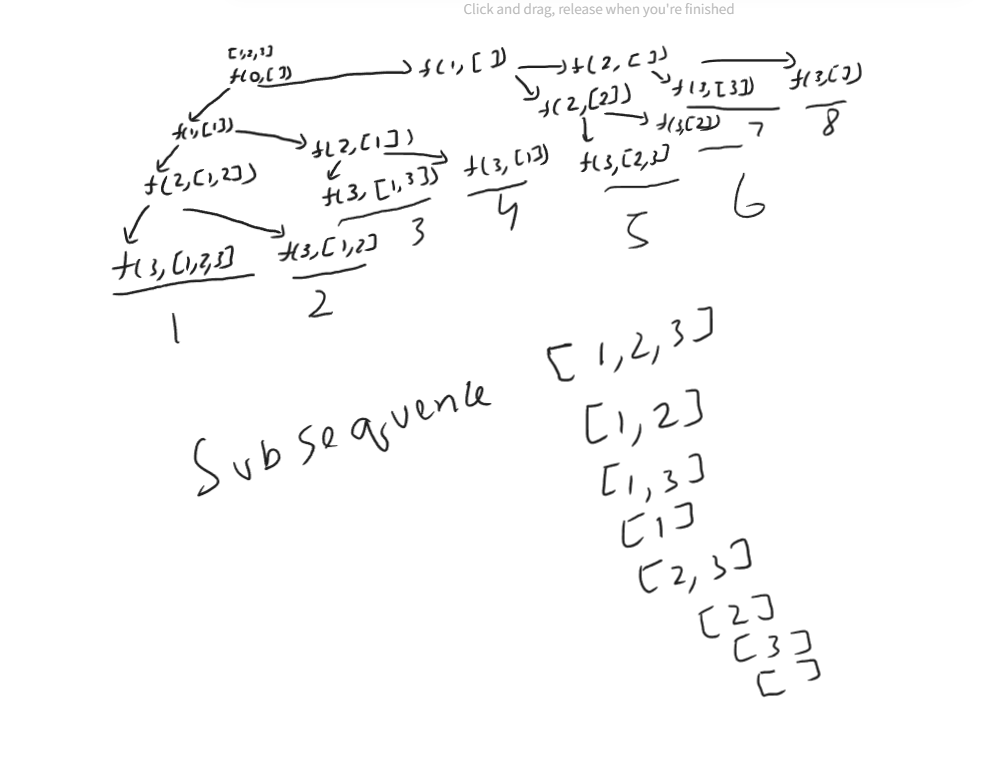 Click and drag, release when you're finished
[1,2,3]
f(0,[])
f(1,[])
f(2,[])
f(3,[])
f(3,[3])
f(2,[2])
f(3,[2])
7
8
f(1,[1])
f(2,[1])
f(3,[1])
f(3,[2,3]
f(2,[1,2])
f(3,[1,3])
4
6
3
5
f(3,[1,2,3]
f(3,[1,2]
1
2
Subsequence
[1,2,3]
[1,2]
[1,3]
[1]
[2,3]
[2]
[3]
[]